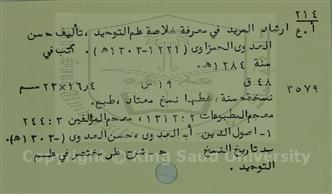 ٢١٤
أ . ع ارشاد المريد في معرفة خلاصة علم التوحيد، تأليف حسن
العدوى الحمزاوى (١٢٢١-١٣٠٣هـ). كتب في
سنة ١٢٨٤هـ.
٤٨ ق ١٩ س ٢٣×١٦٫٤ سم
٣٥٧٩
نسخة حسنة، خطها نسخ معتاد، طبع.
معجم المطبوعات ٢ : ١٣١٢، معجم المؤلفين ٣ : ٢٤٤
١- اصول الدين أ- العدوى، حسن العدوى (-١٣٠٣هـ).
ب- تاريخ النسخ ج- شرح على مختصر في علم
التوحيد.
Copyright © King Saud University